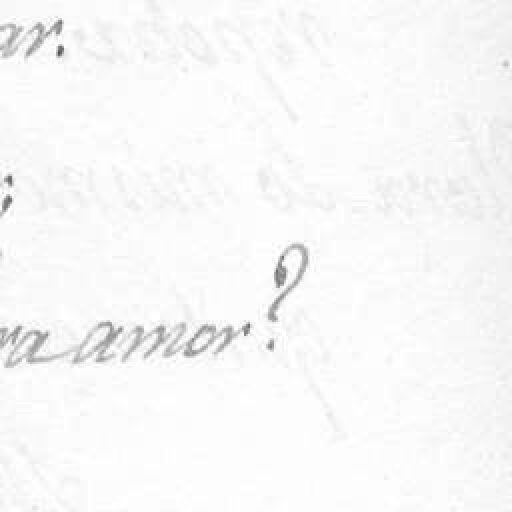 ar.
;
ra amor?